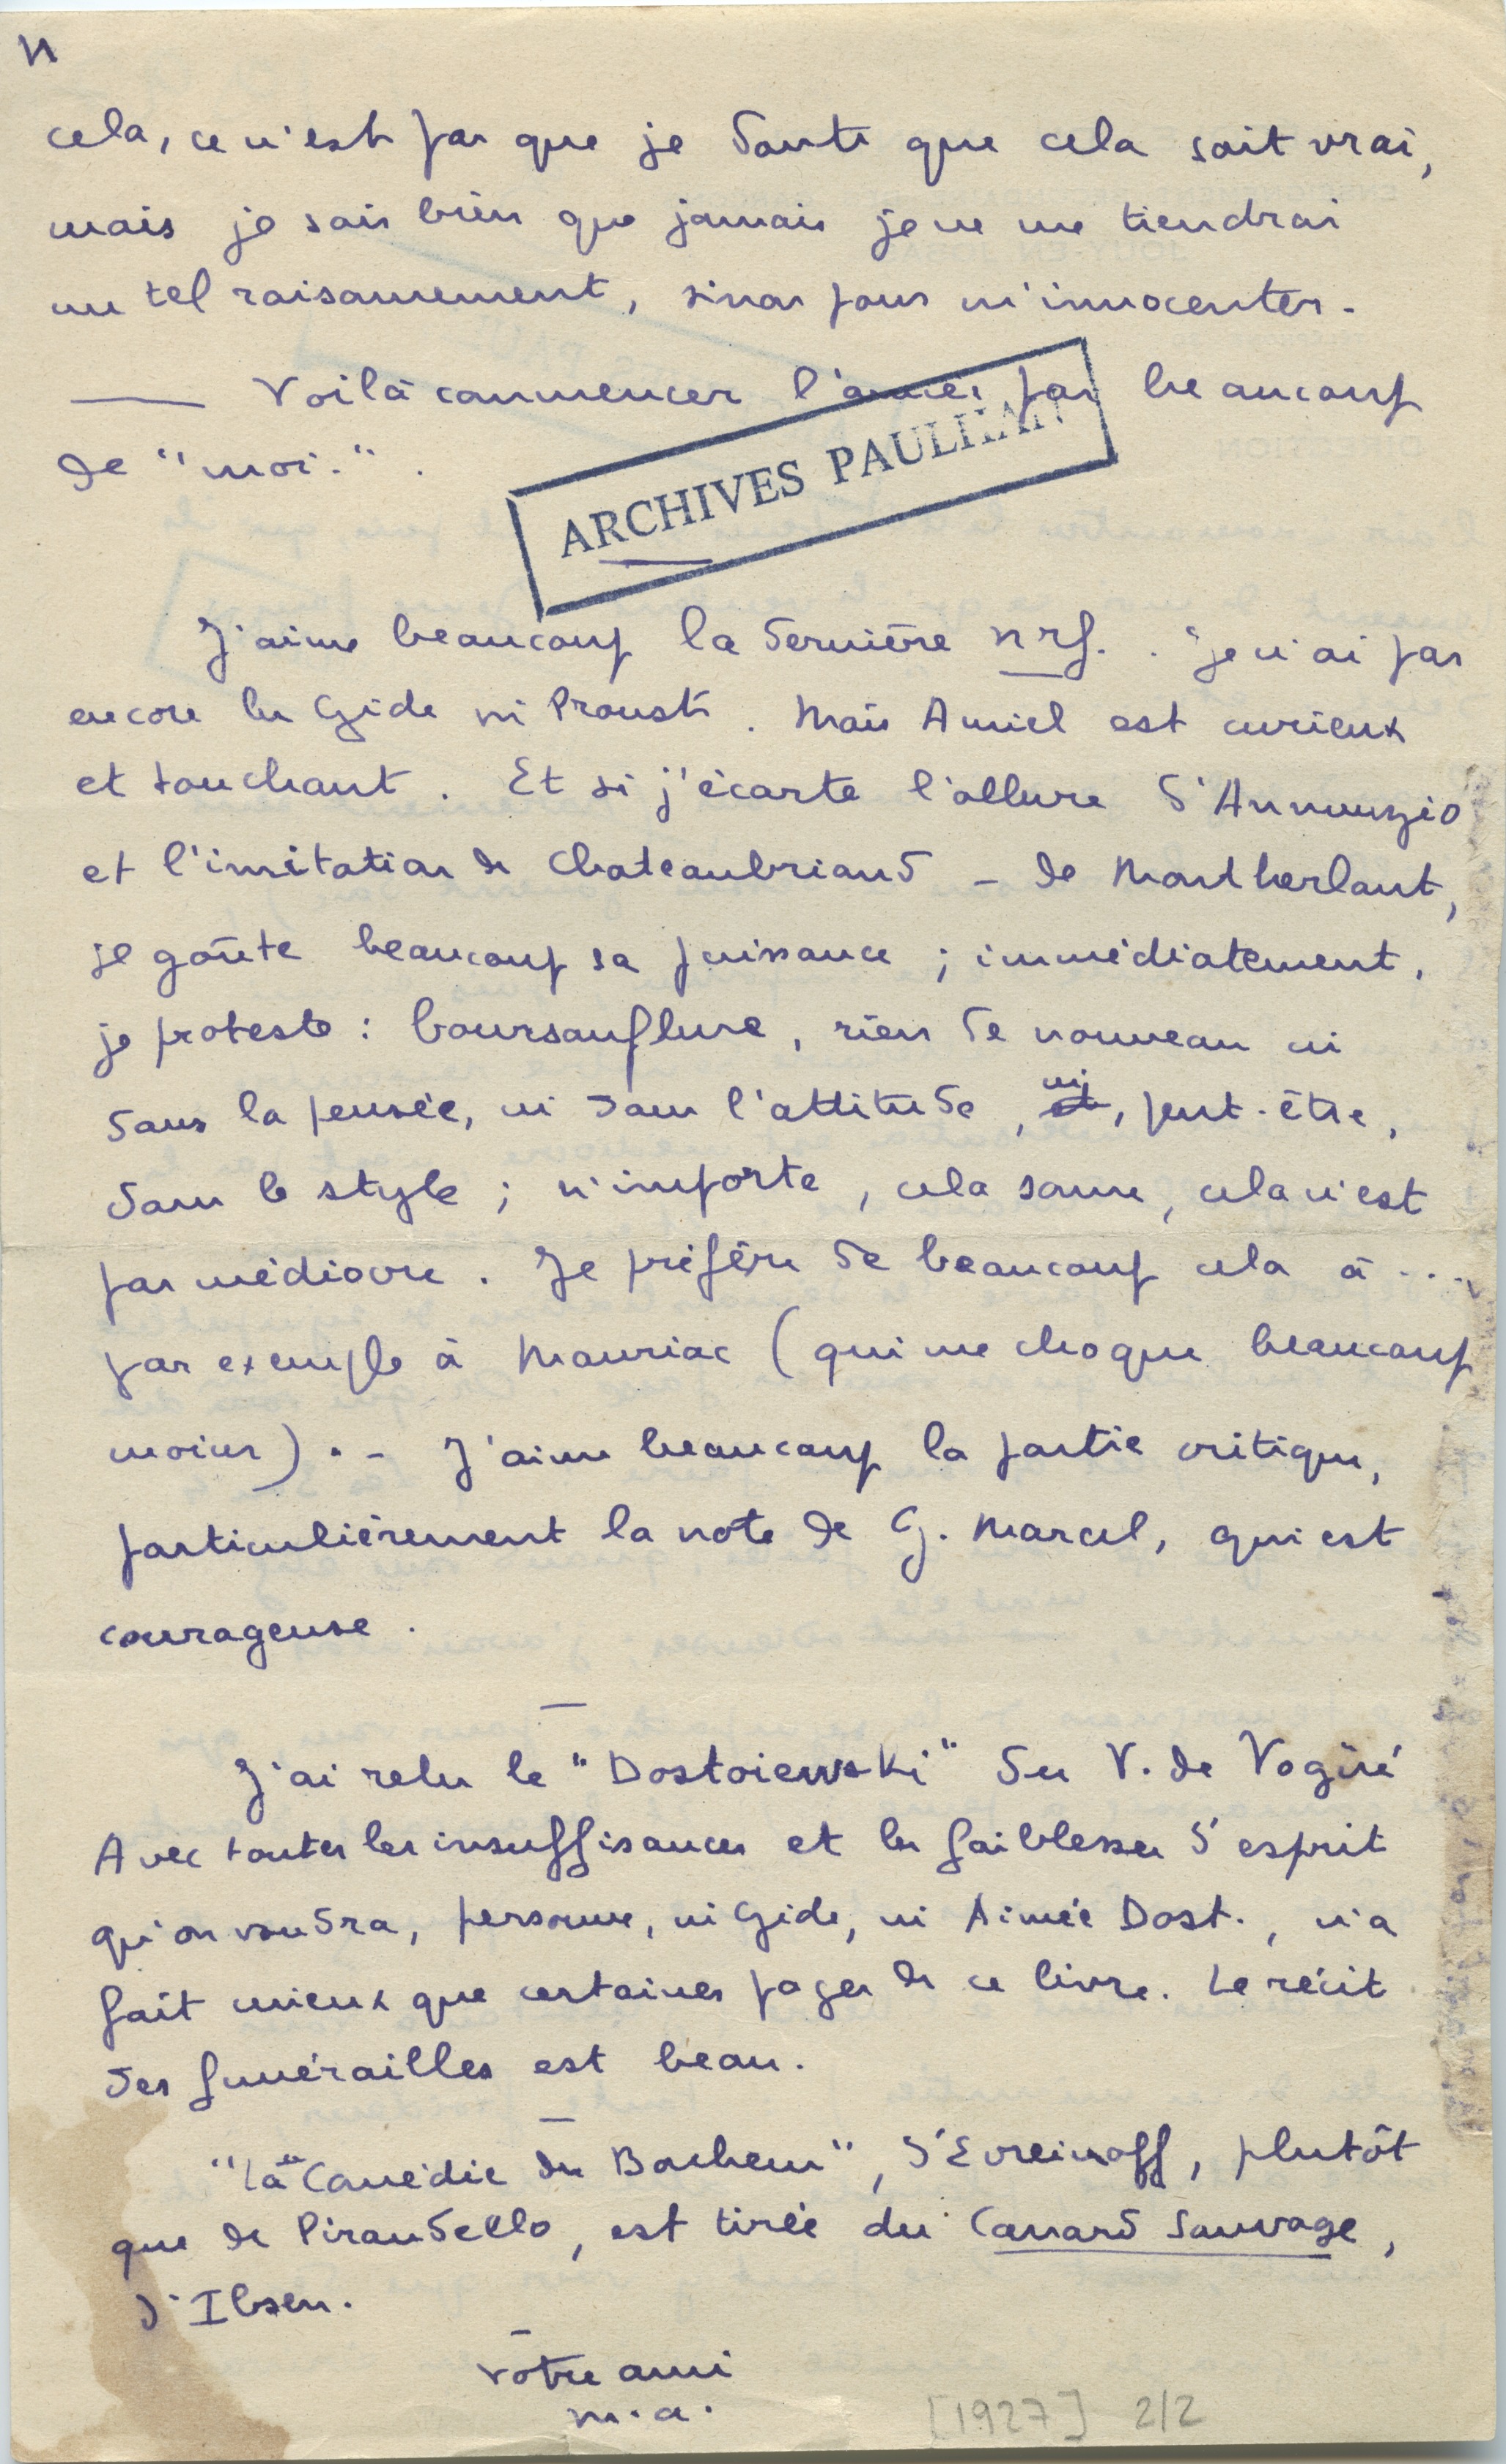 II
cela, ce n'est pas que je doute que cela soit vrai,
mais je sais bien que jamais je ne me tiendrai
un tel raisonnement, sinon pour m'innocenter.
— Voilà commencer l'année par beaucoup
de "moi." .
ARCHIVES PAULHAN
J'aime beaucoup la dernière nrf. . Je n'ai pas
encore lu Gide ni Proust. Mais Amiel est curieux
et touchant. Et si j'écarte l'allure d'Annunzio
et l'imitation de Chateaubriand – de Montherlant,
je goûte beaucoup sa puissance ; immédiatement,
je proteste : boursouflure, rien de nouveau ni
dans la pensée, ni dans l'attitude, et ni, peut-être,
dans le style ; n'importe, cela sonne, cela n'est
pas médiocre. Je préfère de beaucoup cela à ...,
par exemple à Mauriac (qui me choque beaucoup
moins). – J'aime beaucoup la partie critique,
particulièrement la note de G. Marcel, qui est
courageuse.
—
J'ai relu le "Dostoiewski" du V. de Vogüé
Avec toutes les insuffisances et les faiblesses d'esprit
qu'on voudra, personne, ni Gide, ni Aimée Dost., n'a
fait mieux que certaines pages de ce livre. Le récit
des funérailles est beau.
—
"La "Comédie du Bonheur", d'Evreinoff, plutôt
que de Pirandello, est tirée du Canard Sauvage,
d'Ibsen.
—
votre ami
m.a.
[1927] 2/2